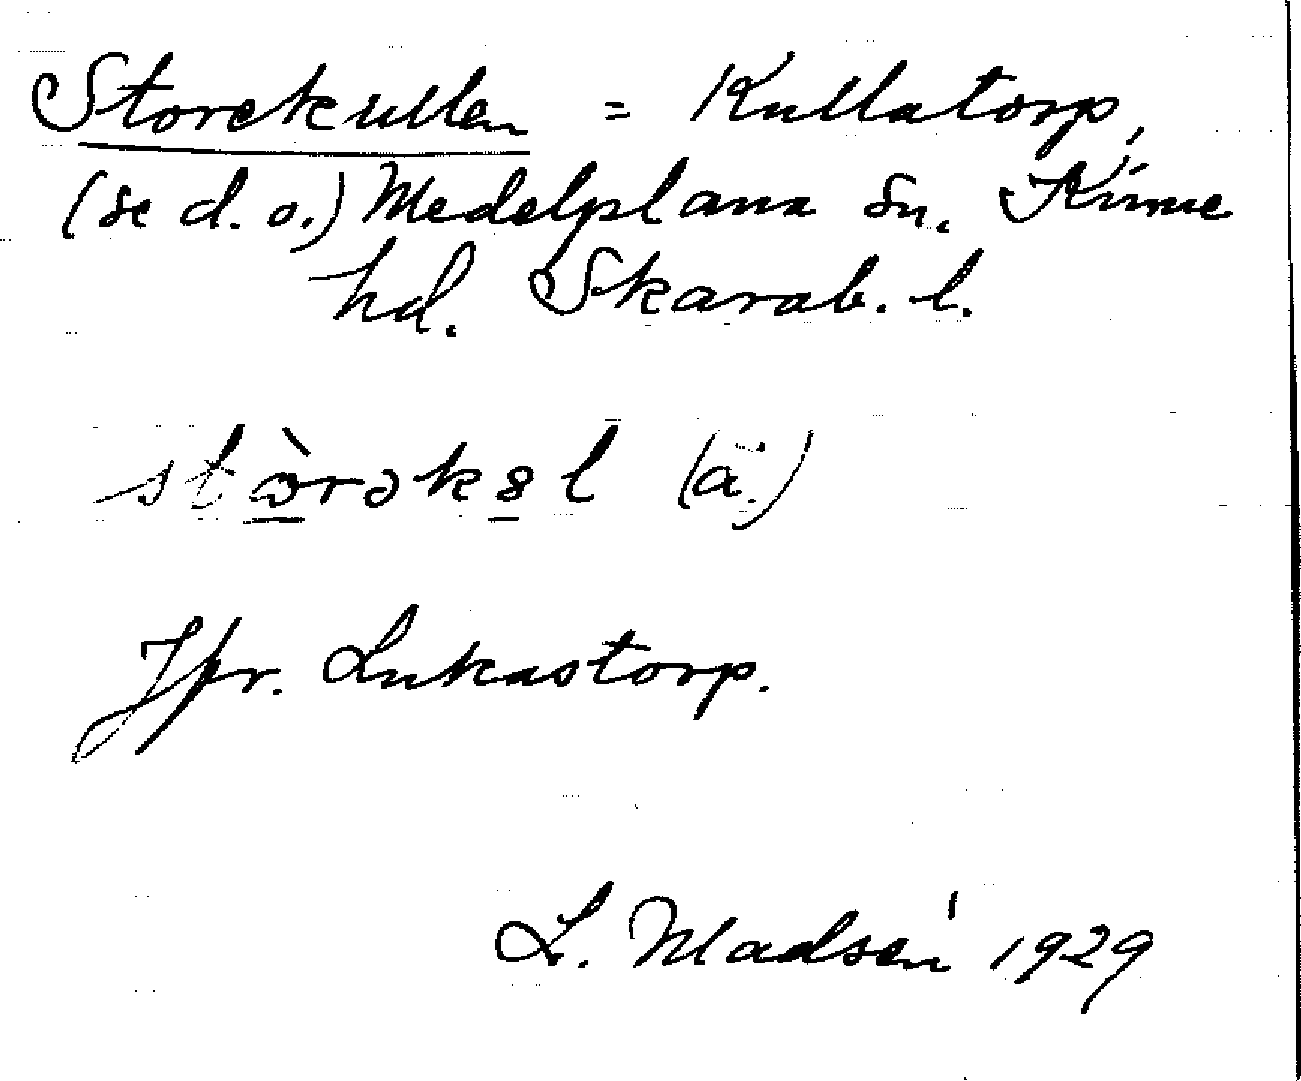 Storekullen = Kullatorp,
(se d. o.) Medelplana sn. Kinne
hd. Skarab. l.
(ä.)
Jfr. Lukastorp.
L. Madsén 1929